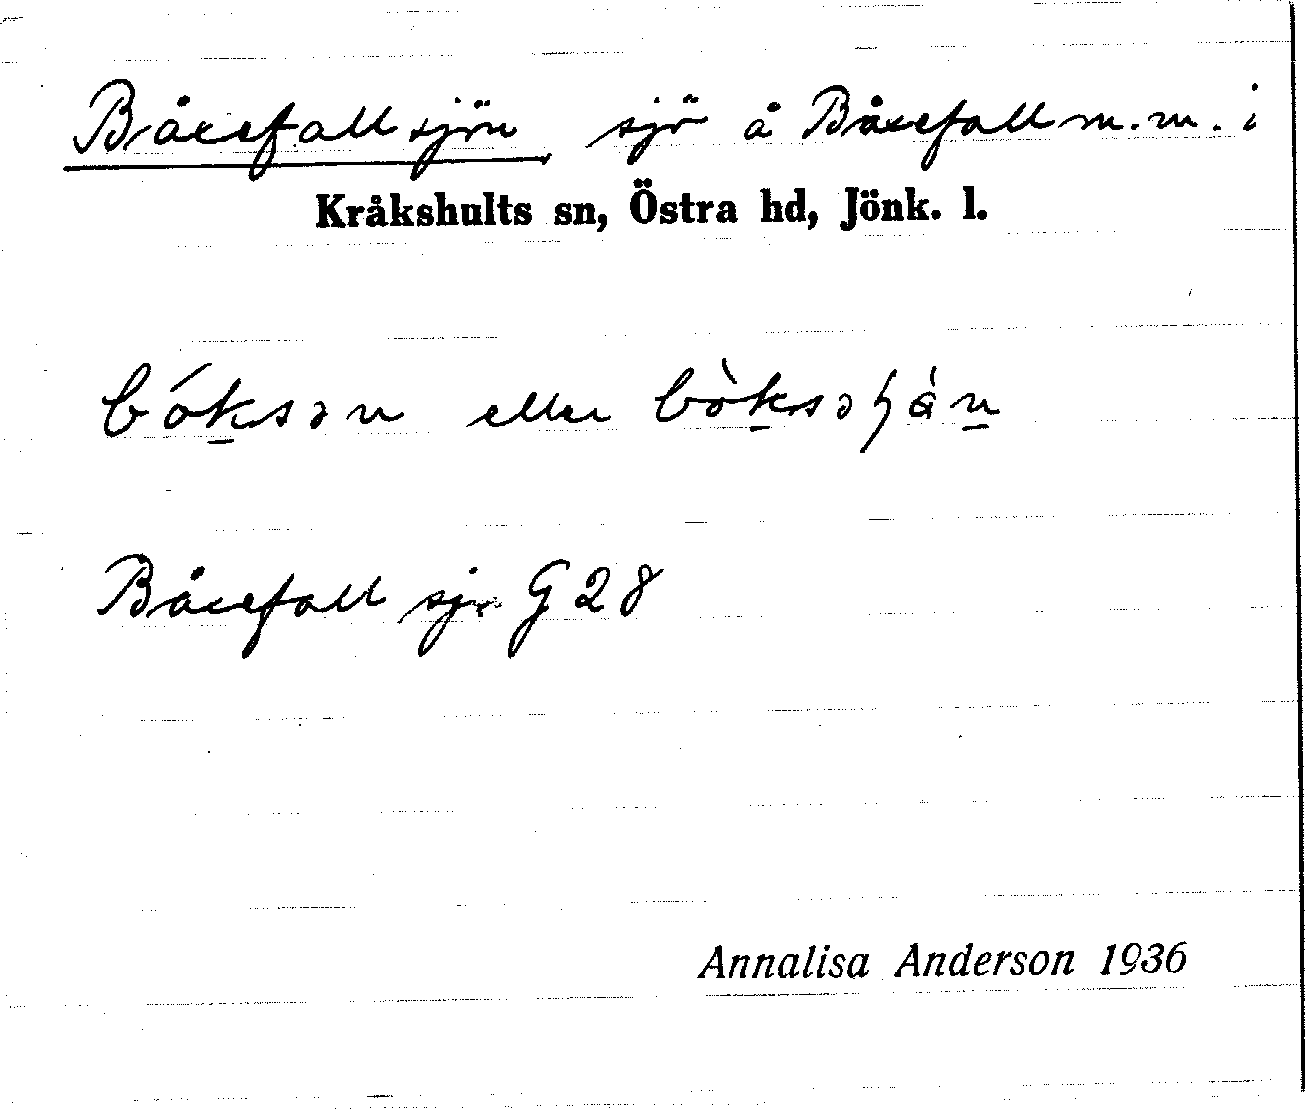 Båxefallsjön sjö å Båxefall m.m. i
Kråkshults sn, Östra hd, Jönk. l.
eller
Båxefall sjö G 28
Annalisa Anderson 1936